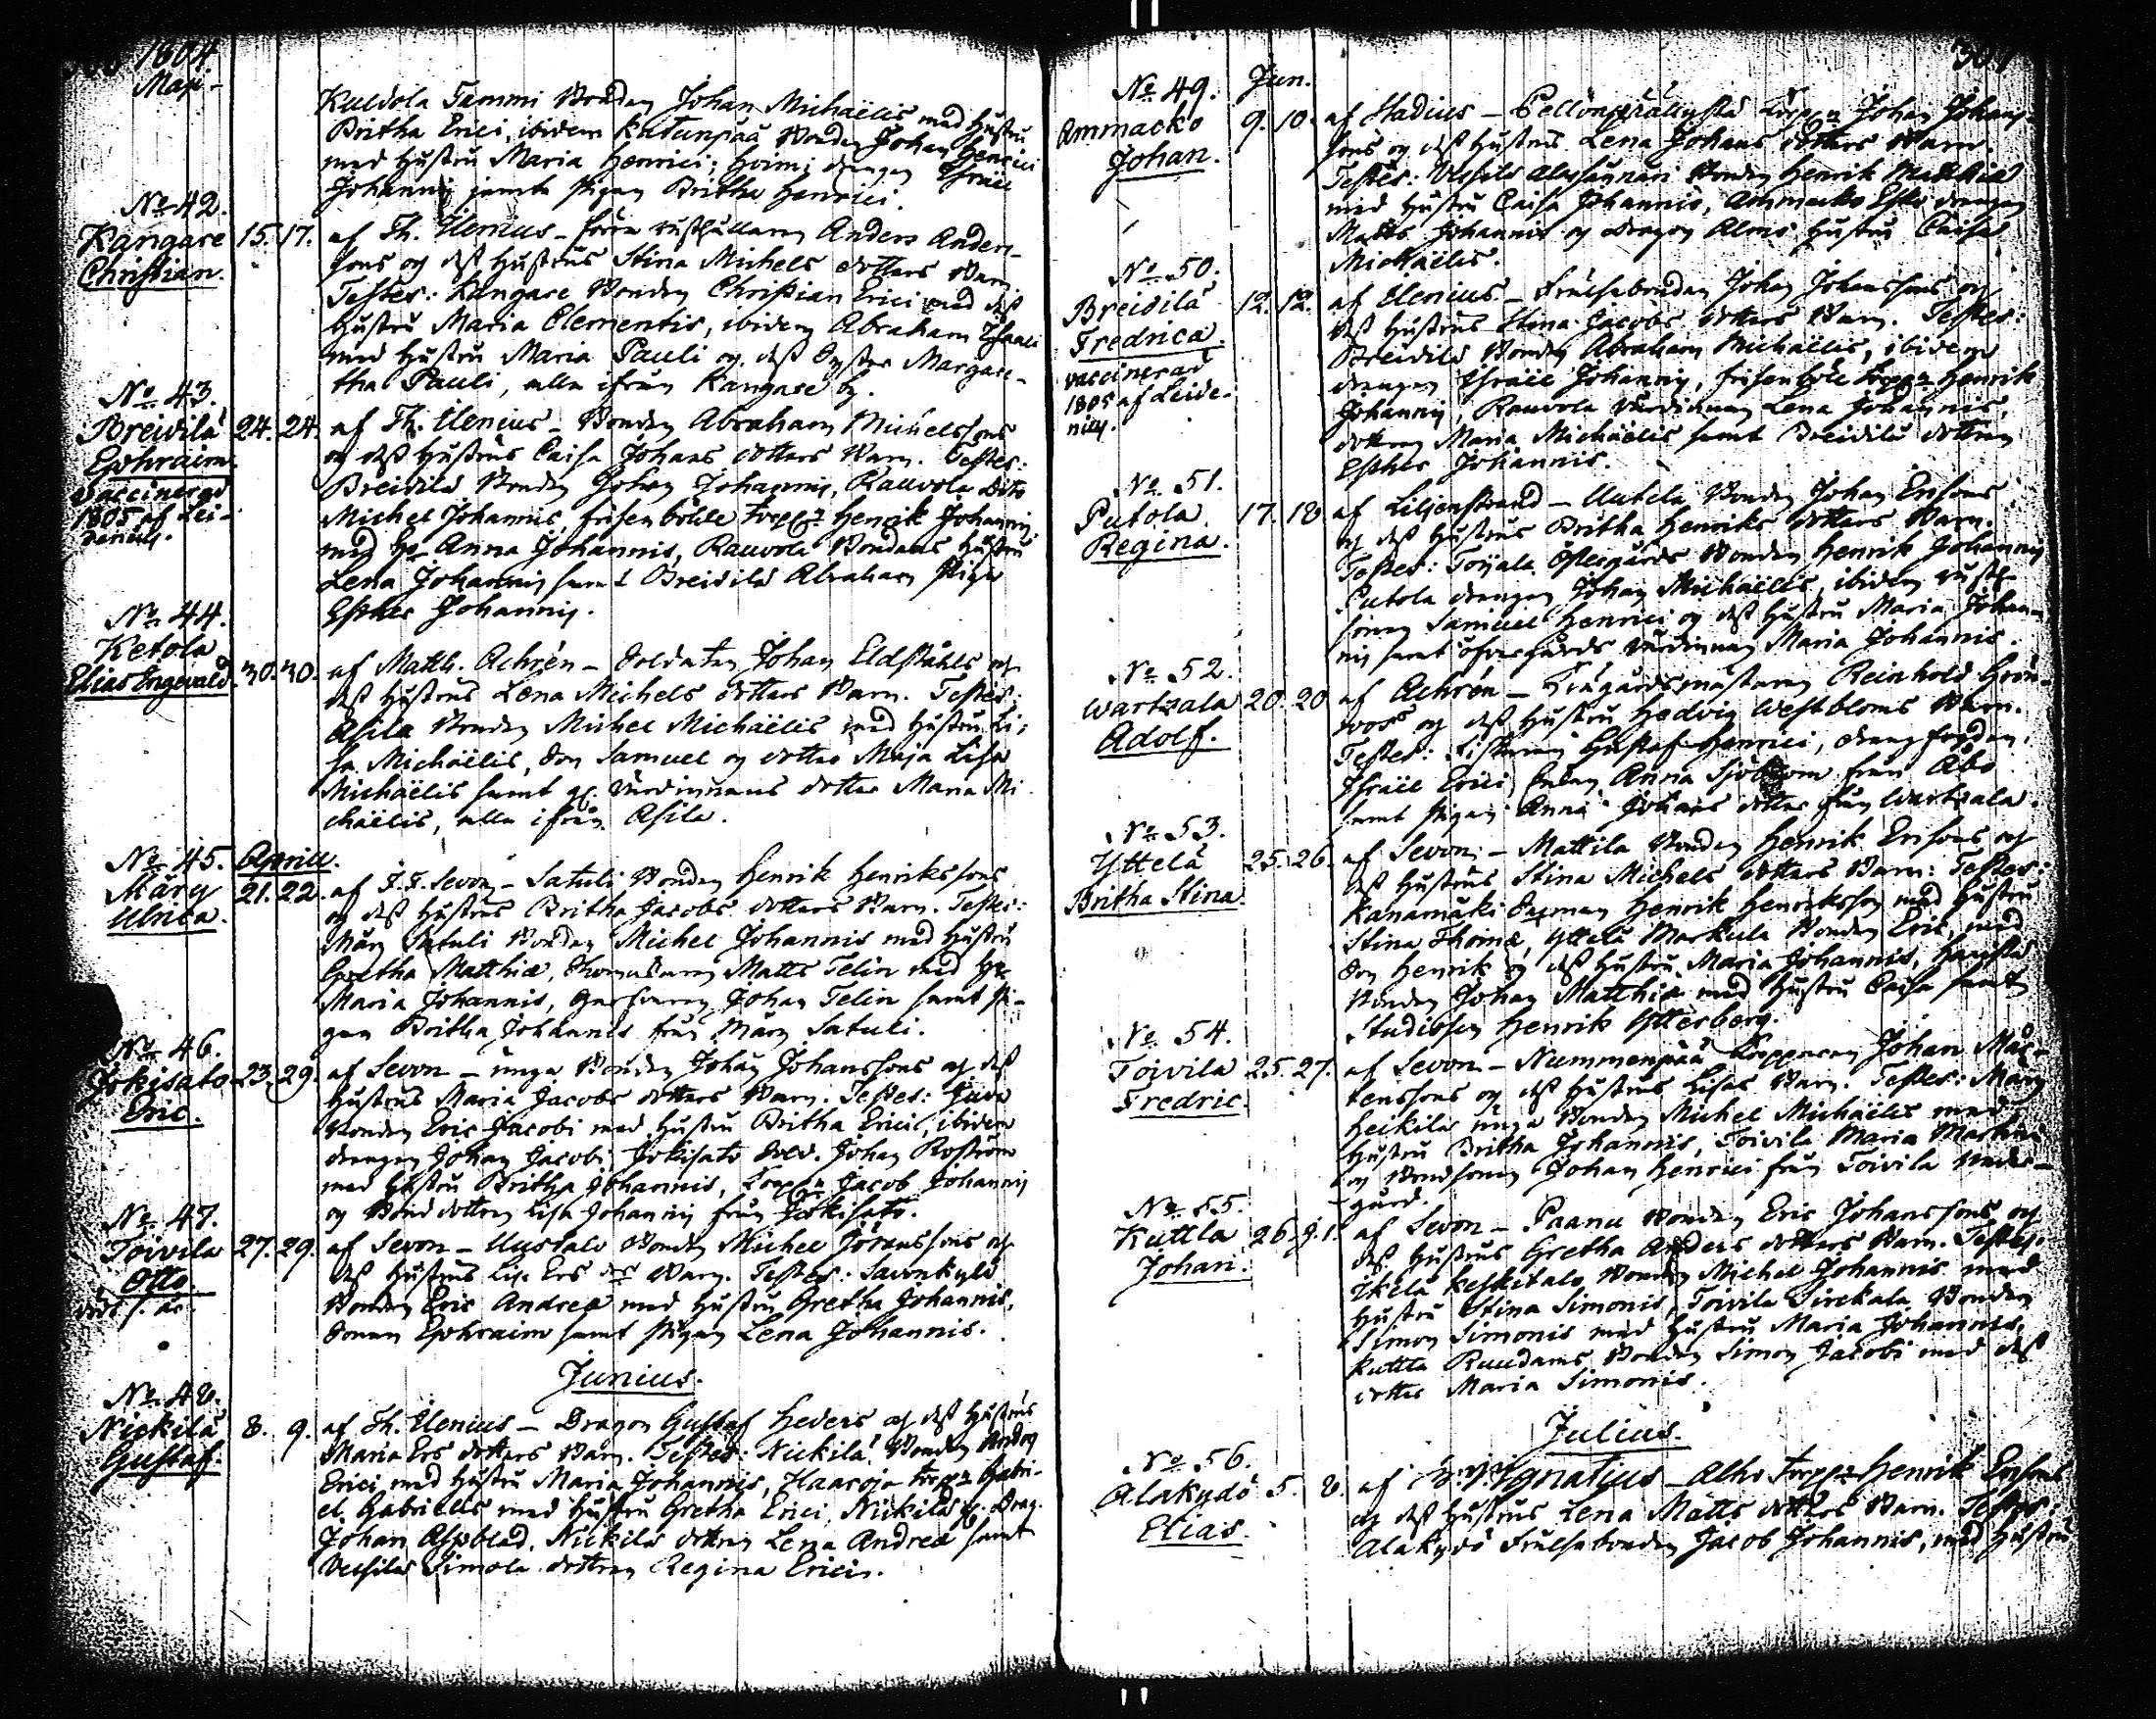 1804
Maji
Kuldola Tammi Bonden Johan Michaëlis med Hustru
Britha Erici, ibidem Katunpää Bonden Johan Henrici
med Hustru Maria Henrici; drengen Israël
Johannis jemte Pigan Britha Henrici.
No 42.
Kangare 15. 17. af Th. Ilenius – förra rusthållaren Anders Anders-
Christian. sons og dess Hustrus Stina Michels dotters Barn.
Testes: Kangare Bonden Christian Erici med dess
Hustru Maria Clementis, ibidem Abraham Isaaci
med Hustru Maria Pauli og dess Syster Margare-
tha Pauli, alla ifrån Kangare by.
No 43.
Breidilä 24. 24. af Th. Ilenius – Bonden Abraham Michelssons
Ephraim. og dess Hustrus Caisa Johans dotters Barn. Testes:
vaccinerad Breidilä Bonden Johan Johannis, Rauvola Dito
1805 af Lei- Michel Johannis, frisenböhle Henrik Johannis
denius. med Hu Anna Johannis, Rauvola Bondens Hustru
Lena Johannis samt Breidilä Abraham Piga
Esther Johannis.
No 44.
Ketola
Elias Ingevald. 30. 30. af Matth. Achrén – Soldaten Johan Eldståhls og
dess Hustrus Lena Michels dotters Barn. Testes:
Asila Bonden Michel Michaëlis med Hustru Li-
sa Michaëlis, Son Samuel og dotter Maja Lisa
Michaëlis samt gl. Värdinnans dotter Maria Mi-
chaëlis, alla ifrån Asila.
No 45. Aprill.
Märy 21. 22. af J. F. Sevon – Satuli Bonden Henrik Henrikssons
Ulrica. og dess Hustrus Britha Jacobs dotters Barn. Testes:
Märy Satuli Bonden Michel Johannis med Hustru
Gretha Matthiæ, Matts Telin med Hu
Maria Johannis, Johan Telin samt Pi-
gan Britha Johannis från Märy Satuli.
No 46.
Jokisato 23. 29. af Sevon – unga Bonden Johan Johanssons og dess
Eric. Hustrus Maria Jacobs dotters Barn. Testes: Juva
Bonden Eric Jacobi med Hustru Britha Erici, ibidem
drengen Johan Jacobi, Jokisato Sold. Johan Roström
med Hustru Britha Johannis, Torpn Jacob Johannis
og Bonddottren Lisa Johannis från Jokisato.
No 47.
Toivila 27. 29. af Sevon – Uustalo Bonden Michel Jöranssons og
Otto. dess Hustrus Lis. Ers drs Barn. Testes: Savonkylä
död s. år. Bonden Eric Andreæ med Hustru Gretha Johannis,
Sonen Ephraim samt Pigan Lena Johannis.
Junius.
No 48.
Nickilä 8. 9. af Th. Ilenius – Dragon Gustaf Heders og dess Hustrus
Gustaf. Maria Ers dotters Barn. Testes: Nickilä Bonden Anders
Erici med Hustru Maria Johannis, Haaroja torpn Gabri-
el Gabrielis med Hustru Gretha Erici, Nickilä gl. Drag.
Johan Aspblad, Nickilä dottren Lena Andreæ samt
Veihilä Simola dottren Regina Erici.
No 49. Jun.
Ammacko 9. 10. af Stadius – Torpn Johan Johans-
Johan. sons og dess Hustrus Lena Johans dotters Barn.
Testes: Bonden Henrik Matthiæ
med Hustru Caisa Johannis, Ammacko Esko drengen
Matts Johannis og Dragon Alms Hustru Caisa
Michaëlis.
No 50.
Breidilä 12. 12. af Ilenius – Frälsebonden Johan Johanssons og
Fredrica. dess Hustrus Stina Jacobs dotters Barn. Testes:
vaccinerad Breidilä Bonden Abraham Michaëlis, ibidem
1805 af Leide- drengen Israël Johannis, frisenböle Torpn Henrik
nius. Johannis, Rauvola Värdinnan Lena Johannis,
dottren Maria Michaëlis samt Breidilä dottren
Esther Johannis.
No 51.
Putola 17. 18 af Liljenstrand – Uutela Bonden Johan Ersons
Regina. og dess Hustrus Britha Henriks dotters Barn.
Testes: Toijala Östergårds Bonden Henrik Johannis
Putola drengen Johan Michaëlis, ibidem rusth-
sonen Samuel Henrici og dess Hustru Maria Johan-
nis samt öfvergårds Värdinnan Maria Johannis.
No 52.
Wartsala 20. 20 af Achrén – Trägårdsmästaren Reinhold Grön-
Adolf. roos og dess Hustru Hedvig Westbloms Barn.
Testes: Gustaf Henrici, drengfogden
Israël Erici, Anna Sjöblom från Åbo
samt Pigan Anna Johans dotter från Wartsala.
No 53.
Yttelä 25. 26. af Sevon – Mattila Bonden Henrik Ersons og
Britha Stina dess Hustrus Stina Michels dotters Barn: Testes:
Kanamäki Henrik Henriksson med Hustru
Stina Thomæ, Yttelä Markula Bonden Eric, med
Son Henrik og dess Hustru Maria Johannis,
Bonden Johan Matthiæ med Hustru Caisa samt
Studiosen Henrik Ytterberg.
No 54.
Toivila 25. 27. af Sevon – Nummenpää Torpparen Johan Mår-
Fredric. tenssons og dess Hustrus Lisas Barn. Testes: Märy
Heikilä unga Bonden Michel Michaëlis med
Hustru Britha Johannis, Toivila Maria Martini
og Bondsonen Johan Henrici från Toivila Neder-
gård.
No 55.
Kuttla 26. 1. af Sevon – Paanu Bonden Eric Johanssons og
Johan. dess Hustrus Gretha Anders dotters Barn. Testes:
Ikelä Keskitalo Bonden Michel Johannis med
Hustru Stina Simonis, Toivila Sirckala Bonden
Simon Simonis med Hustru Maria Johannis,
Kuttla Ruudams Bonden Simon Jacobi med dess
dotter Maria Simonis.
Julius.
No 56.
Alakydö 5. 8. af Ignatius – Alho Torpn Henrik Ersons
Elias. og dess Hustrus Lena Matts dotters Barn. Testes:
Alakydö Frälsebonden Jacob Johannis, med Hustru